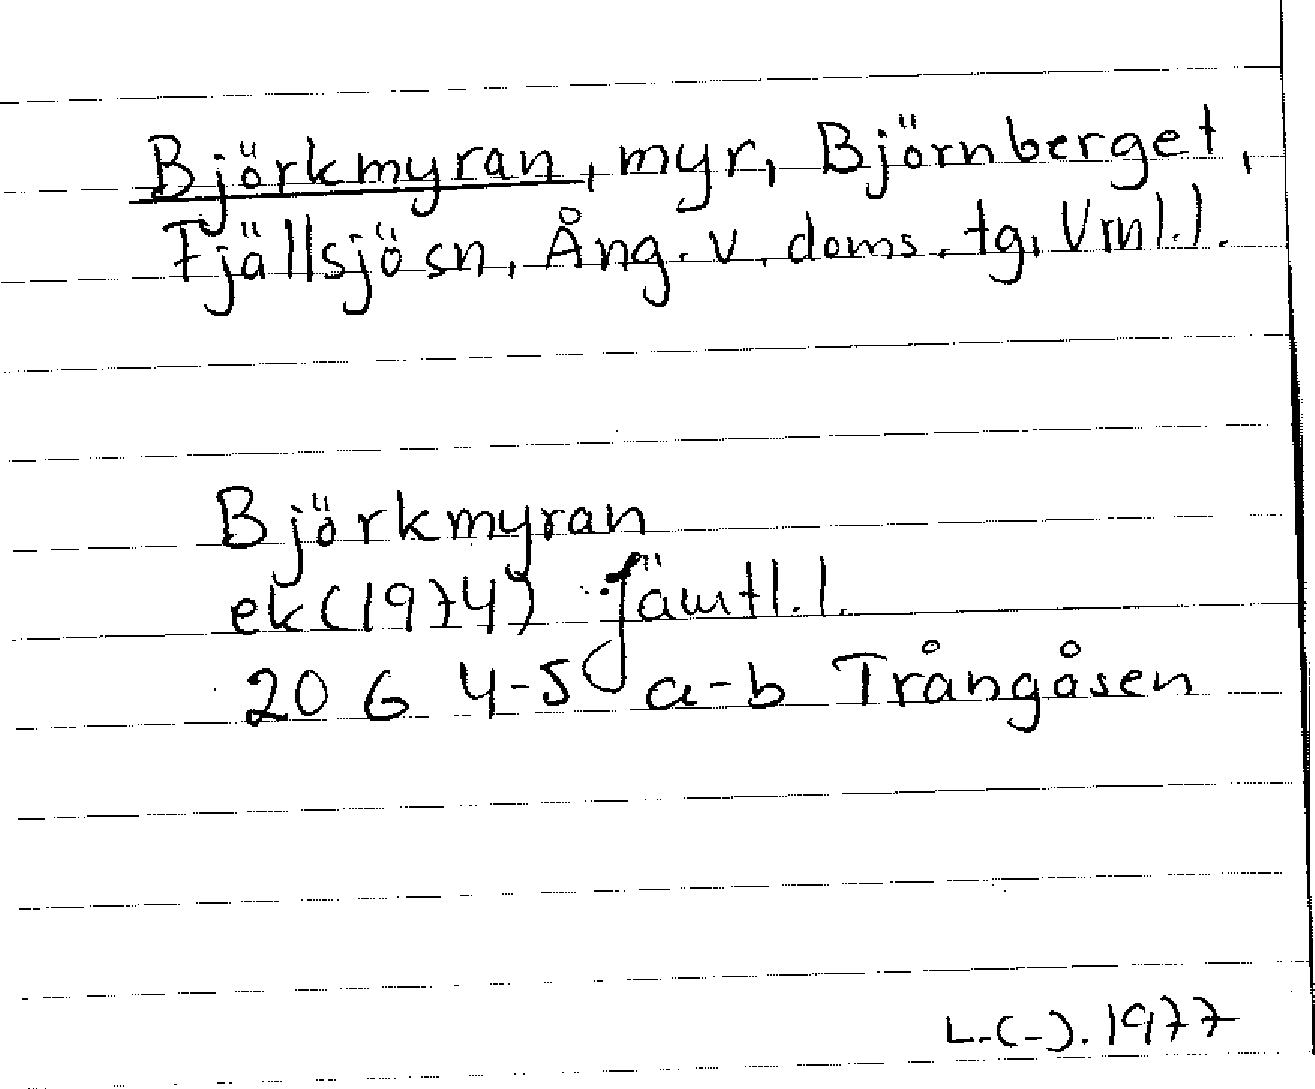 Björkmyran, myr, Björnberget,
Fjällsjösn, Ång. v. doms. tg, Vrnl.l.
Björkmyran
ek (1974) Jämtl.l.
20 G 4-5 a-b Trångåsen
L.(-). 1977